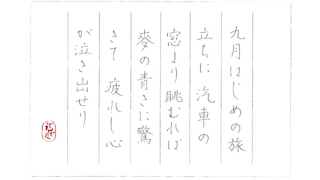 九月はじめの旅
立ちに 汽車の
窓より 眺むれば
麥の青きに驚
きて 疲れし心
が泣き出せり